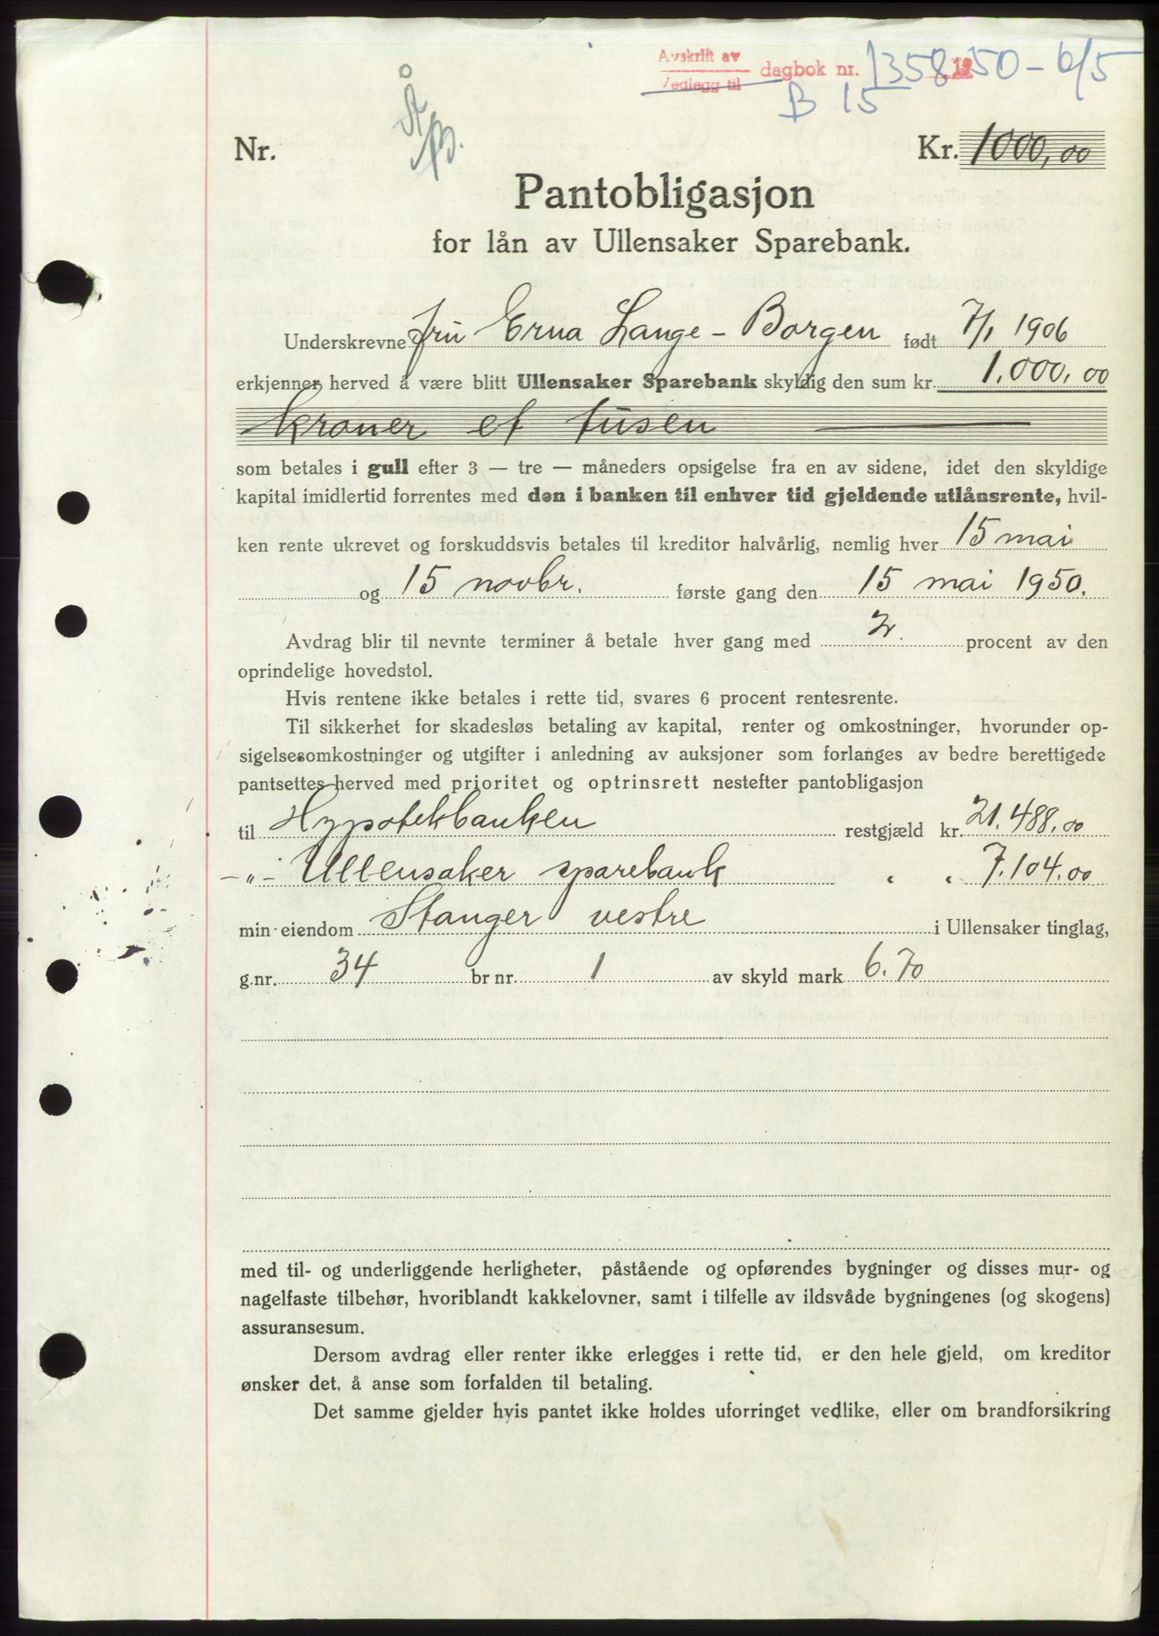 Avskrift av
Vedlegg til
dagbok nr. 1358 1950 - 6/5
B 15
Nr.
Kr. 1000,00
Pantobligasjon
for lån av Ullensaker Sparebank.
Underskrevne fru Erna Lange - Borgen født 7/1 1906
erkjenner herved å være blitt Ullensaker Sparebank skyldig den sum kr. 1.000,00
kroner et tusen
som betales i gull efter 3 — tre — måneders opsigelse fra en av sidene, idet den skyldige
kapital imidlertid forrentes med den i banken til enhver tid gjeldende utlånsrente, hvil-
ken rente ukrevet og forskuddsvis betales til kreditor halvårlig, nemlig hver 15 mai
og 15 novbr. første gang den 15 mai 1950.
Avdrag blir til nevnte terminer å betale hver gang med 2. procent av den
oprindelige hovedstol.
Hvis rentene ikke betales i rette tid, svares 6 procent rentesrente.
Til sikkerhet for skadesløs betaling av kapital, renter og omkostninger, hvorunder op-
sigelsesomkostninger og utgifter i anledning av auksjoner som forlanges av bedre berettigede
pantsettes herved med prioritet og optrinsrett nestefter pantobligasjon
til Hypotekbanken restgjæld kr. 21.488,00
-„- Ullensaker sparebank „ „ 7.104.00
min eiendom Stanger vestre i Ullensaker tinglag,
g.nr. 34 br nr. 1 av skyld mark 6.70
med til- og underliggende herligheter, påstående og opførendes bygninger og disses mur- og
nagelfaste tilbehør, hvoriblandt kakkelovner, samt i tilfelle av ildsvåde bygningenes (og skogens)
assuransesum.
Dersom avdrag eller renter ikke erlegges i rette tid, er den hele gjeld, om kreditor
ønsker det, å anse som forfalden til betaling.
Det samme gjelder hvis pantet ikke holdes uforringet vedlike, eller om brandforsikring